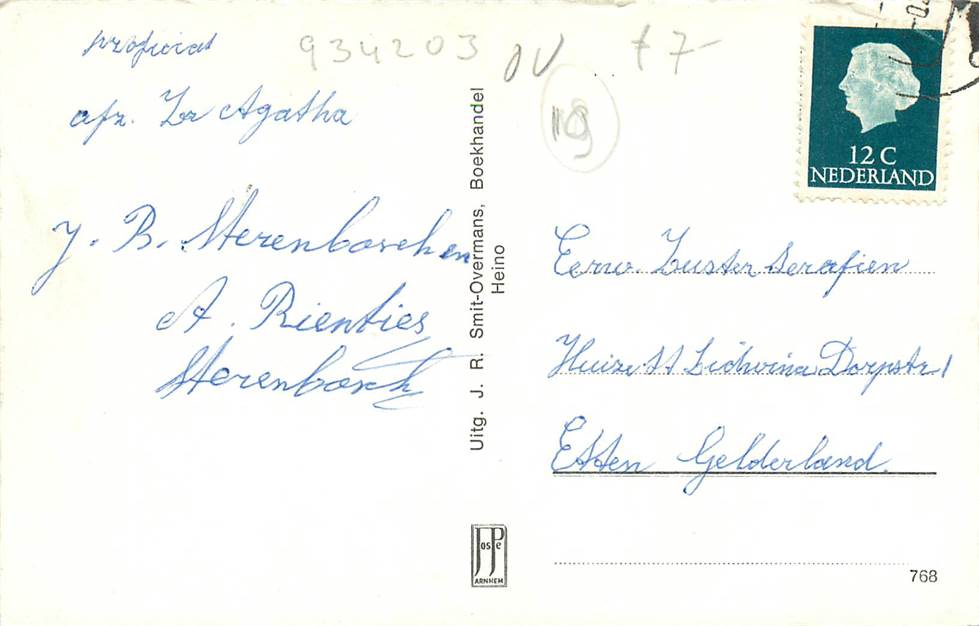 proficiat
afz. Zr Agatha
J. B. Sterenboschen
A. Rienties
Sterenbosch
934203
f 7-
Uitg. J. R. Smit-Overmans, Boekhandel
Heino
JosPe
ARNHEM
12 C
NEDERLAND
Eerw. Zuster Serafien
Huize St Lidwina Dorpstr 1
Etten Gelderland.
768